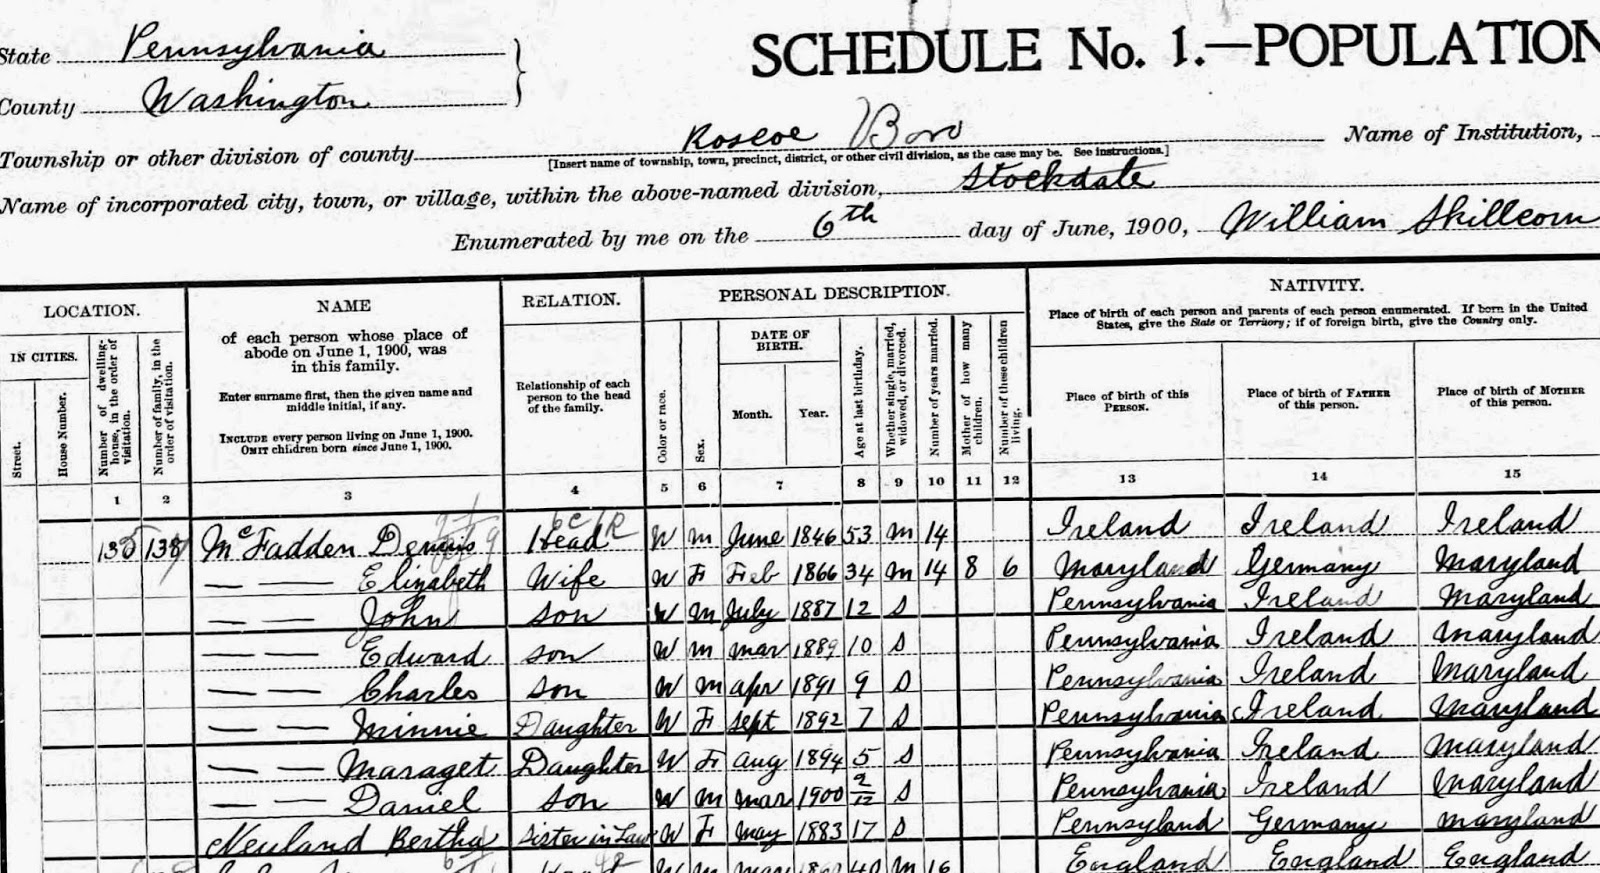 State Pennsylvania
SCHEDULE No. 1.—POPULATION
County Washington
Township or other division of county Roscoe Boro
Name of Institution,
[Insert name of township, town, precinct, district, or other civil division, as the case may be. See instructions.]
Name of incorporated city, town, or village, within the above-named division, Stockdale
Enumerated by me on the 6th day of June, 1900, William Skillcorn
LOCATION.
IN CITIES.
Street.
House Number.
Number of dwelling-house, in the order of visitation.
Number of family, in the order of visitation.
NAME
of each person whose place of
abode on June 1, 1900, was
in this family.
Enter surname first, then the given name and
middle initial, if any.
INCLUDE every person living on June 1, 1900.
OMIT children born since June 1, 1900.
RELATION.
Relationship of each
person to the head
of the family.
PERSONAL DESCRIPTION.
Color or race.
Sex.
DATE OF
BIRTH.
Month. Year.
Age at last birthday.
Whether single, married, widowed, or divorced.
Number of years married.
Mother of how many children.
Number of these children living.
NATIVITY.
Place of birth of each person and parents of each person enumerated. If born in the United
States, give the State or Territory; if of foreign birth, give the Country only.
Place of birth of this
PERSON.
Place of birth of FATHER
of this person.
Place of birth of MOTHER
of this person.
1 2 3 4 5 6 7 8 9 10 11 12 13 14 15
McFadden Dennis Head W M June 1846 53 M 14 Ireland Ireland Ireland
— — Elizabeth Wife W F Feb 1866 34 M 14 8 6 Maryland Germany Maryland
— — John son W M July 1887 12 S Pennsylvania Ireland Maryland
— — Edward son W M mar 1889 10 S Pennsylvania Ireland Maryland
— — Charles son W M apr 1891 9 S Pennsylvania Ireland Maryland
— — Minnie Daughter W F sept 1892 7 S Pennsylvania Ireland Maryland
— — Maraget Daughter W F aug 1894 5 S Pennsylvania Ireland Maryland
— — Daniel son W M mar 1900 2/12 S Pennsylvania Ireland Maryland
Neuland Bertha Sister in Law W F may 1883 17 S Pennsyland Germany Maryland
England England England